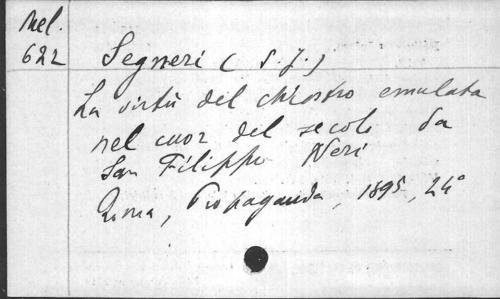 Mel.
622
Segneri (S.J.)
La virtù del chiostro emulata
nel cuor del secolo da
San Filippo Neri
Roma, Propaganda, 1895, 24°